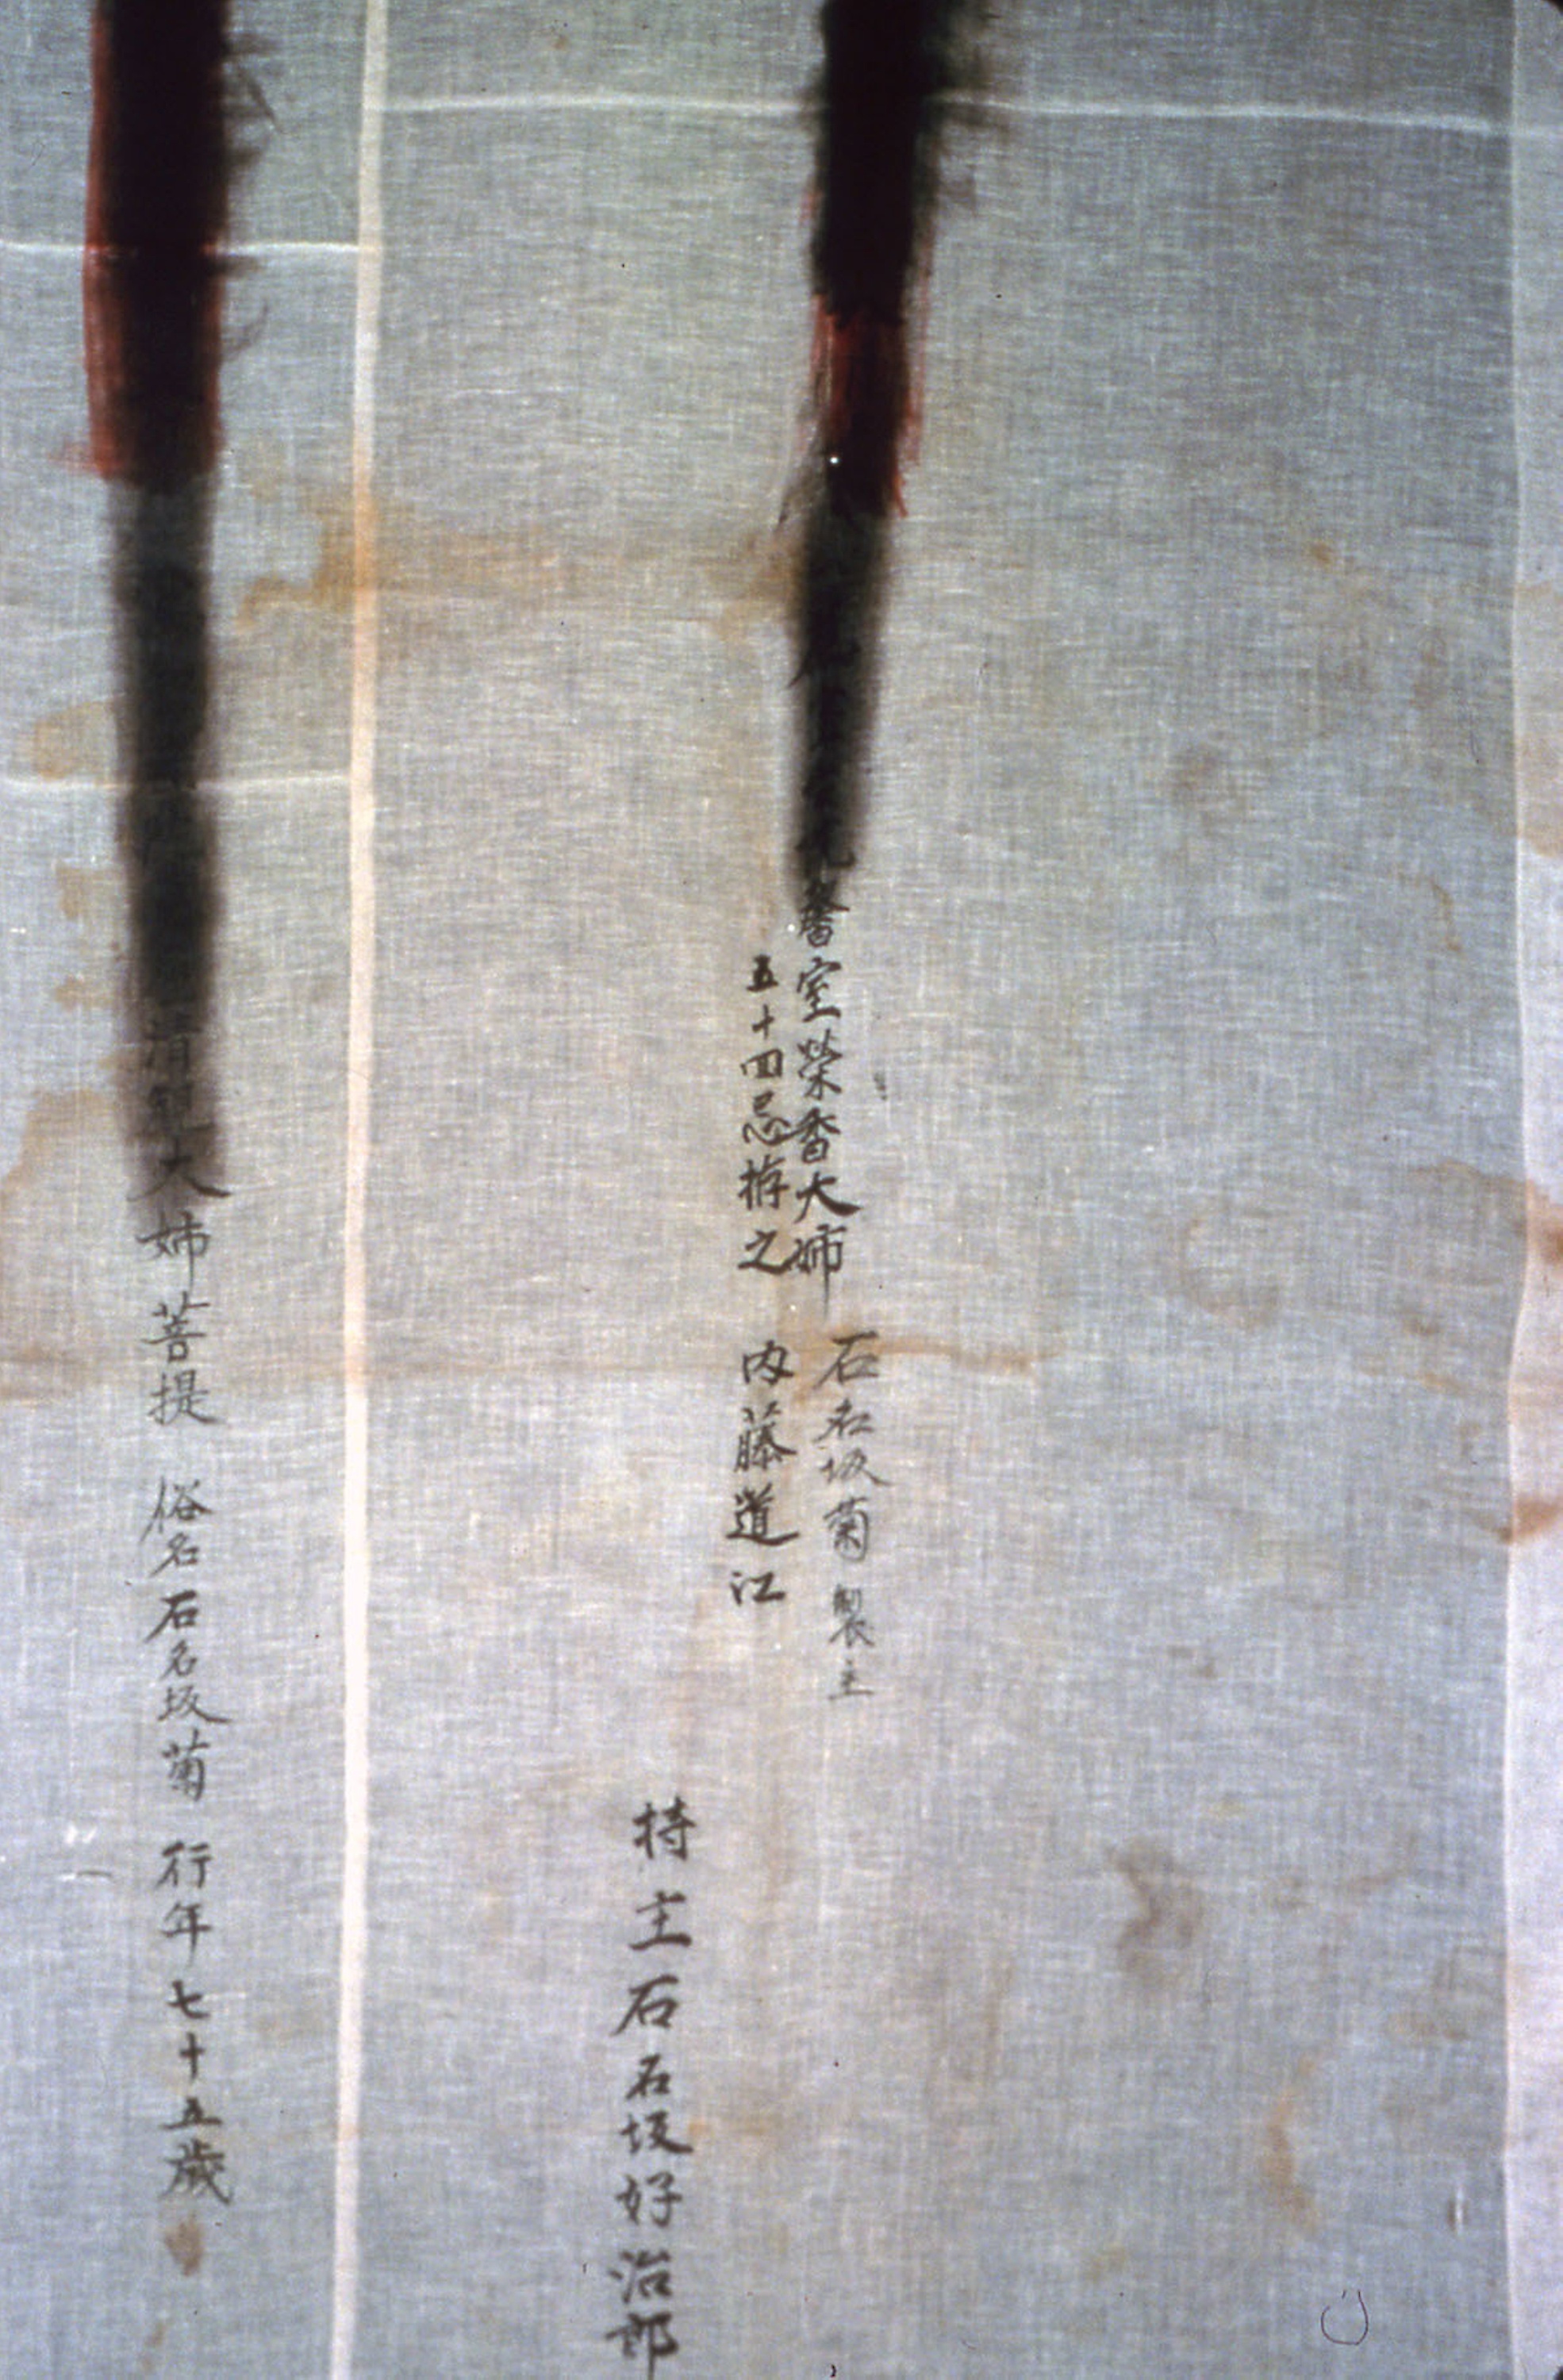 馨室榮香大姉
石名坂菊 製主
五十回忌拵之 内藤道江
持主石名坂好治郎
大姉菩提 俗名石名坂菊 行年七十五歲